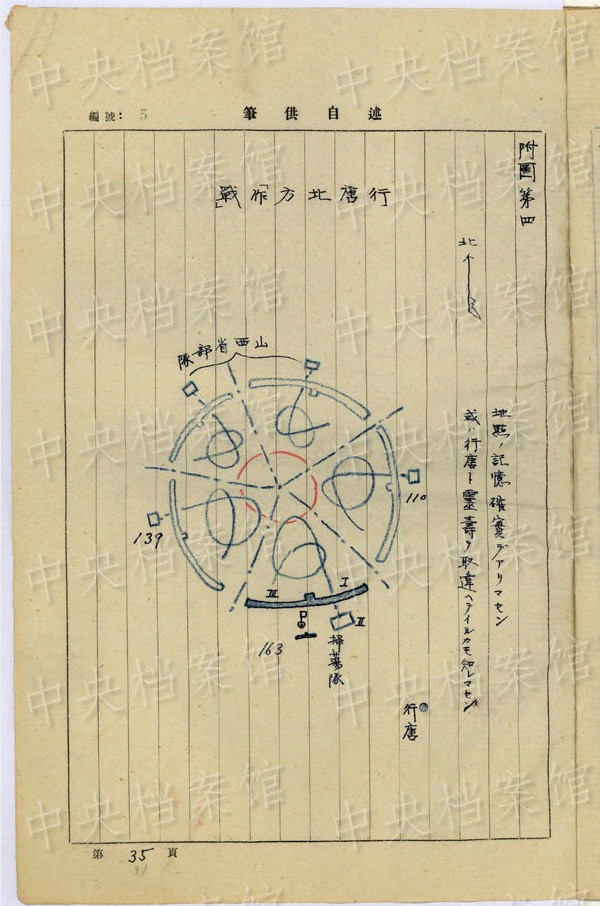 中央档案馆
編號: 5
筆供自述
附圖第四
「行唐北方作戰」
北
地點ノ記憶確實デアリマセン
或ハ行唐ト靈壽ヲ取違ヘテイルカモ知レマセン
山西省部隊
110
139
I
III
II
163
掃蕩隊
行唐
第 35 頁
31